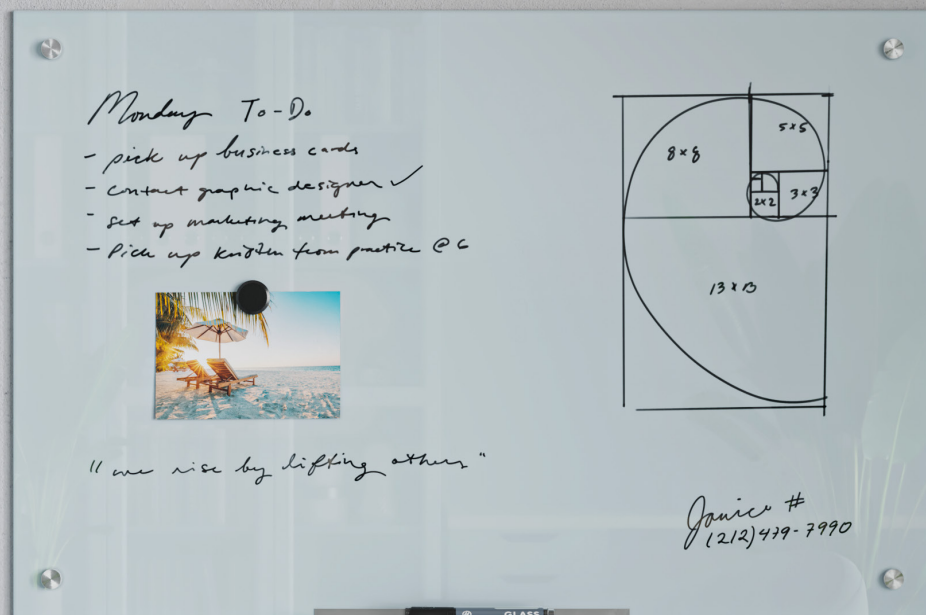 Monday To-Do
- pick up business cards
- contact graphic designer ✓
- set up marketing meeting
- Pick up Kristen from practice @ 6
"we rise by lifting others"
5x5
8x8
3x3
2x2
13x13
Janice #
(212)479-7990
GLASS